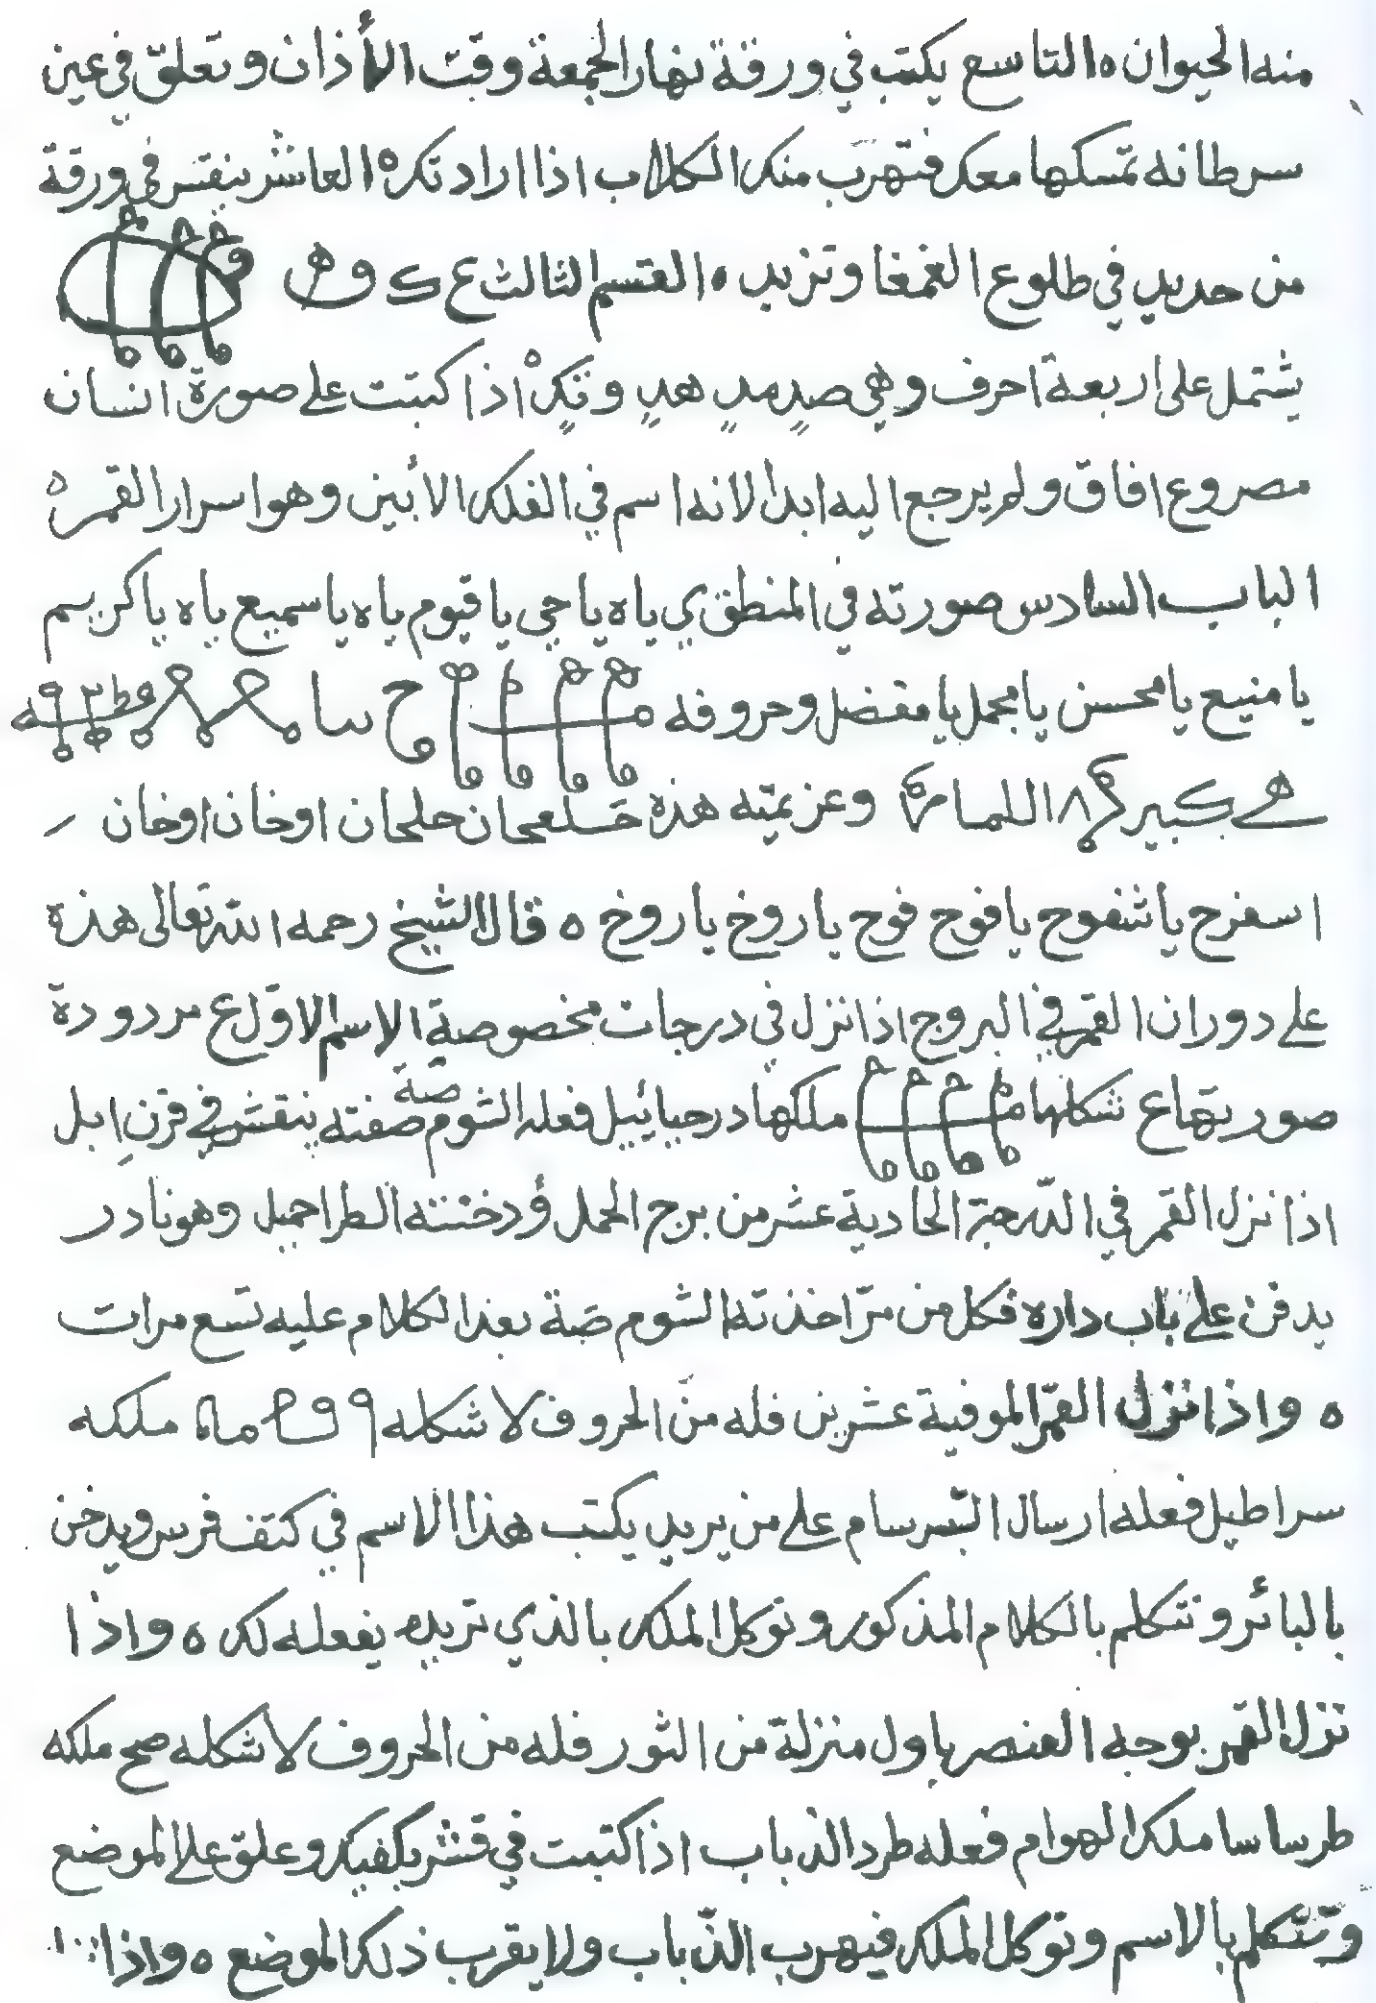 منه الحيوان ه التاسع يكتب في ورقة نهار الجمعة وقت الأذان وتعلق في عين
سرطانه تمسكها معك فتهرب منك الكلاب اذا اراد تكره العاشر ينقش في ورقة
من حديد في طلوع الغمغا وتزيد ه القسم الثالث ع ك و ه
يشتمل على اربعة احرف وهي صد مد هد وتك ه اذا كتبت على صورة انسان
مصروع افاق ولم يرجع اليه ابدا لانه اسم في الفلك الأبين وهو اسرار القمر ه
الباب السادس صورته في المنطق ي ياه يا حي يا قيوم ياه يا سميع ياه يا كريم
يا منيع يا محسن يا مجمل يا مفضل وحروفه
وعزيمته هذه حلحان اوخان اوخان
اسفرح يا شفوح يا فوح فوح يا روخ يا روخ ه قال الشيخ رحمه الله تعالى هذه
على دوران القمر في البروج اذا نزل في درجات مخصوصة الاسم الاول ع مردودة
صورتها ع شكلها ملكها درحيائيل فعله النوم صفته ينقش في قرن ابل
اذا نزل القمر في الدرجة الحادية عشر من برج الحمل ودخنته الطراحيل وهو نادر
يدفن على باب داره فكل من مر اخذته النوم صة بعد الكلام عليه تسع مرات
ه واذا نزل القمر الموفية عشرين فله من الحروف لا شكله ملكه
سراطيل فعله ارسال البرسام على من يريد يكتب هذا الاسم في كتف فرس ويدخن
بالبائر وتتكلم بالكلام المذكور وتوكل الملك بالذي تريد يفعله لك ه واذا
نزل القمر بوجه العنصر باول منزلة من الثور فله من الحروف لا شكله صح ملكه
طرساسا ملك الهوام فعله طرد الذباب اذا كتبت في قشر وعلق على الموضع
وتتكلم بالاسم وتوكل الملك فيهرب الذباب ولا يقرب ذلك الموضع ه واذا